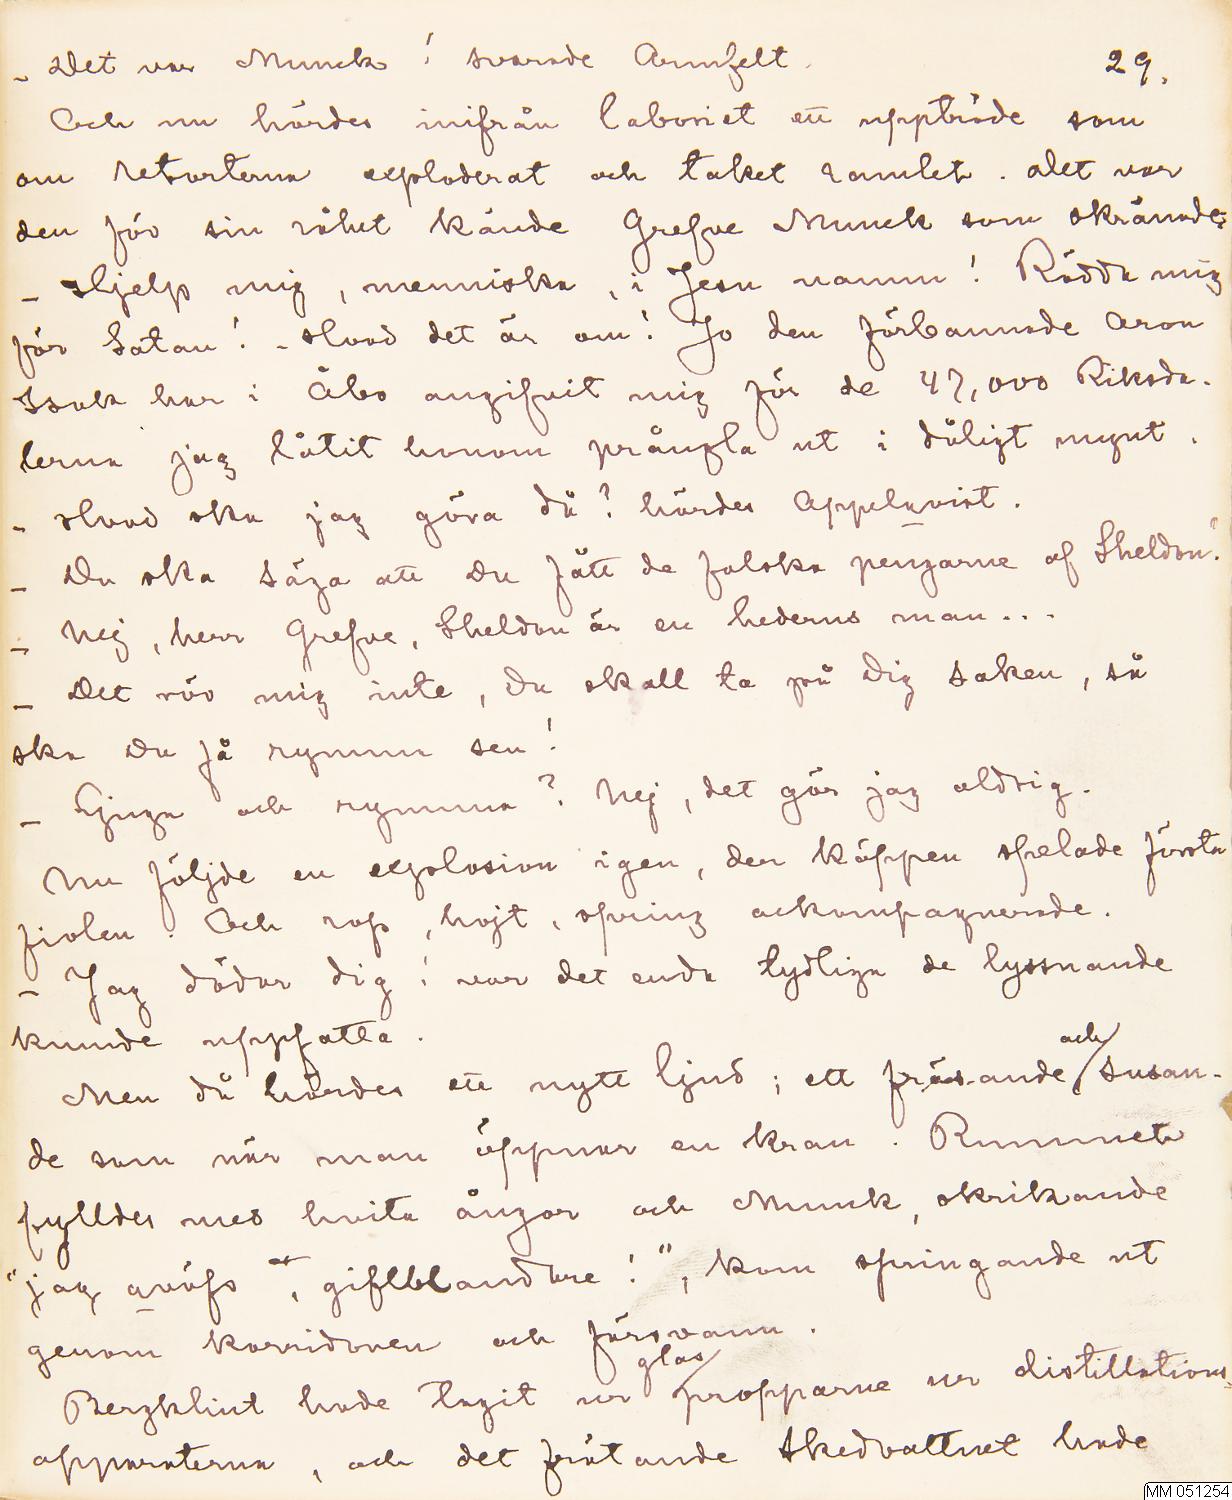 - Det var Munck! svarade Armfelt.
29.
Och nu hördes inifrån laboriet ett uppträde som
om retorterna exploderat och taket ramlet. Det var
den för sin råhet kände Grefve Munck som skrånade:
- Hjelp mig, menniska, i Jesu namn! Rädda mig
för Satan! - Hvad det är om! Jo den förbannade Aron
Isak har i Åbo angifvit mig för de 47,000 Riksda-
lerna jag låtit honom prångla ut i dåligt mynt.
- Hvad ska jag göra då? hördes Appelqvist.
- Du ska säga att Du fått de falska pengarne af Sheldon!
- Nej, herr Grefve, Sheldon är en hederns man...
- Det rör mig inte, Du skall ta på Dig saken, så
ska Du få rymma sen!
- Ljuga och rymma? Nej, det gör jag aldrig.
Nu följde en explosion igen, der käppen spelade första
fiolen. Och rop, hojt, spring ackompagnerade.
- Jag dödar dig! var det enda tydliga de lyssnande
kunde uppfatta.
Men då hördes ett nytt ljud; ett fräsande och susan-
de som när man öppnar en kran. Rummet
fylldes med hvita ångor och Munck, skrikande
"jag qväfs, giftblandare!", kom springande ut
genom korridoren och försvann.
Bergklint hade tagit ur glaspropparne ur distillations-
apparaterna, och det frätande skedvattnet hade
MM 051254